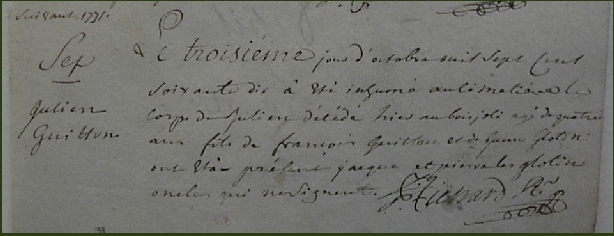 soixante 1771.
Sep
Julien
Guitton
Le troisiéme jour d'octobre mil sept cent
soixante dix à été inhumé au cimetiere le
corps de Julien décédé hier au boisjoli agé de quatre
ans fils de francois Guitton et de Glotin
ont été présent jacque et pierre les glotin
oncles qui ne signent.